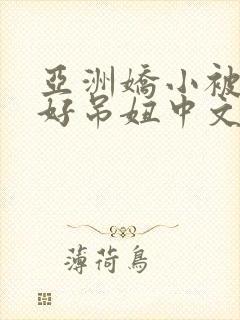 亞洲嬌小被
好吊妞中文
薄荷鳥